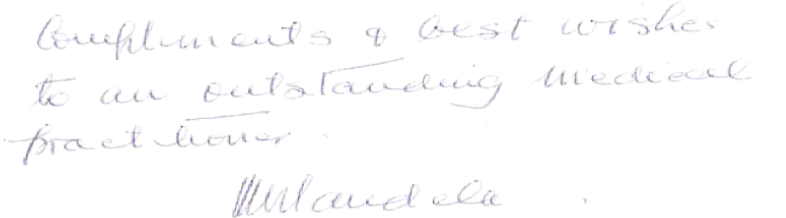 Compliments & best wishes
to an outstanding medical
practitioner.
NMandela